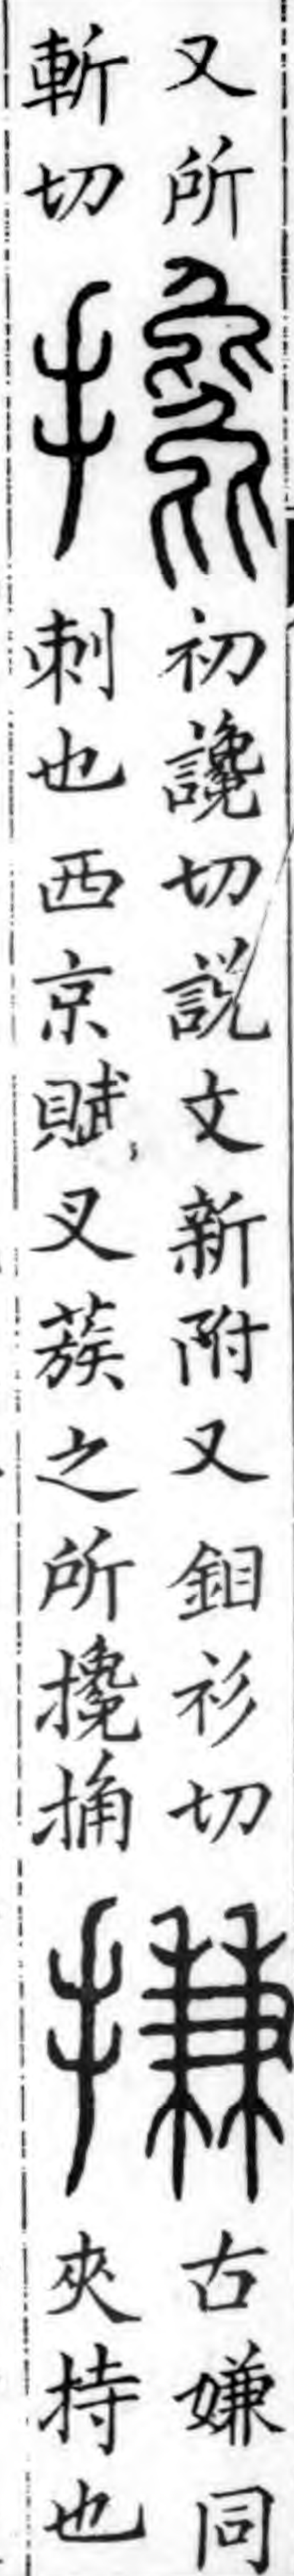 又所
斬切
攙
初讒切説文新附又鉏衫切
刺也西京賦叉蔟之所攙捔
搛
古嫌同
夾持也